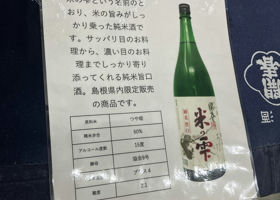 米の雫という名前のと
おり、米の旨みがしっ
かり乗った純米酒で
す。サッパリ目のお料
理から、濃い目のお料
理までしっかり寄り
添ってくれる純米旨口
酒。島根県内限定販売
の商品です。
原料米 つや姫
精米歩合 60%
アルコール度数 15度
酵母 協会9号
日本酒度 プラス4
酸度 2.1
純米酒
米の雫
開春